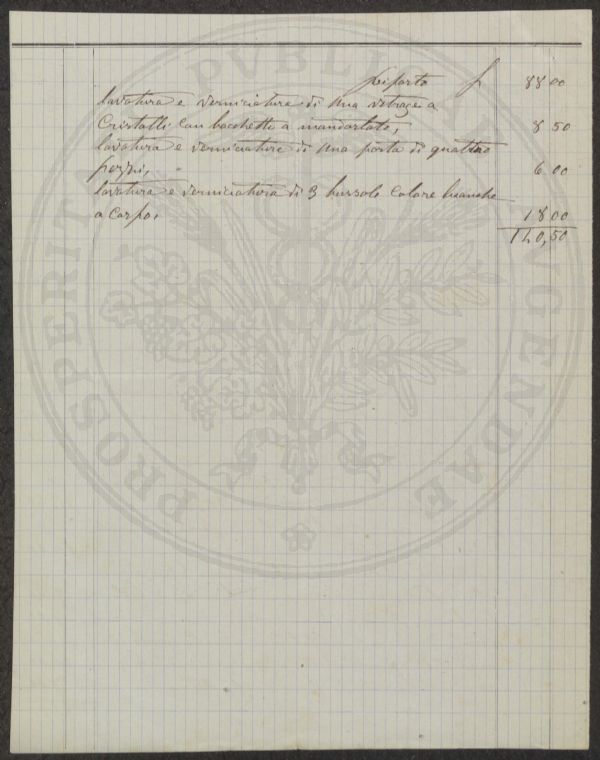 Riporto f 88 00
lavatura e verniciatura di una vetrage a
Cristalli Con bachette a mandorlato, 8 50
lavatura e verniciature di una porta di quattro
pezzi, 6 00
lavatura e verniciatura di 3 bussole Colore bianche
a Corpo, 18 00
140,50
PROSPERITATI PUBLICAE AUGENDAE